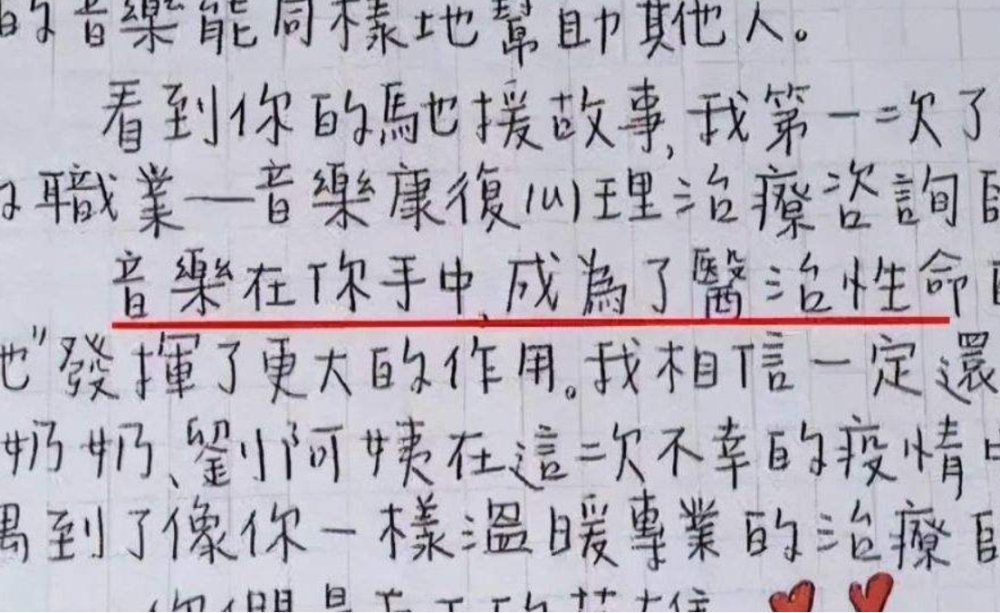 的音樂能同樣地幫助其他人。
看到你的馳援故事,我第一次了
職業—音樂康復心理治療咨詢
音樂在你手中,成為了醫治性命
也"發揮了更大的作用。我相信一定還
奶奶、劉阿姨在這次不幸的疫情
遇到了像你一樣溫暖專業的治療